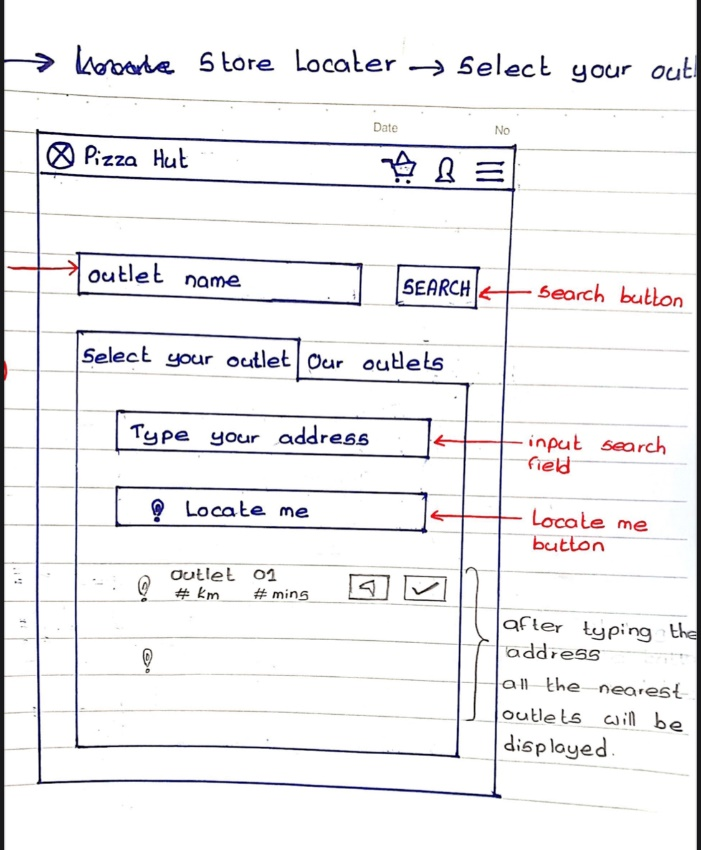 → Store Locater → Select your outl
Date No
Pizza Hut
outlet name
SEARCH
← search button
Select your outlet
Our outlets
Type your address
← input search
field
Locate me
← Locate me
button
outlet 01
# km # mins
after typing the
address
all the nearest
outlets will be
displayed.